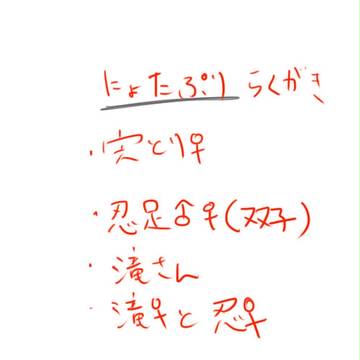 にょたぷり らくがき
・実とり♀
・忍足♀(双子)
・滝さん
・滝♀と忍♀